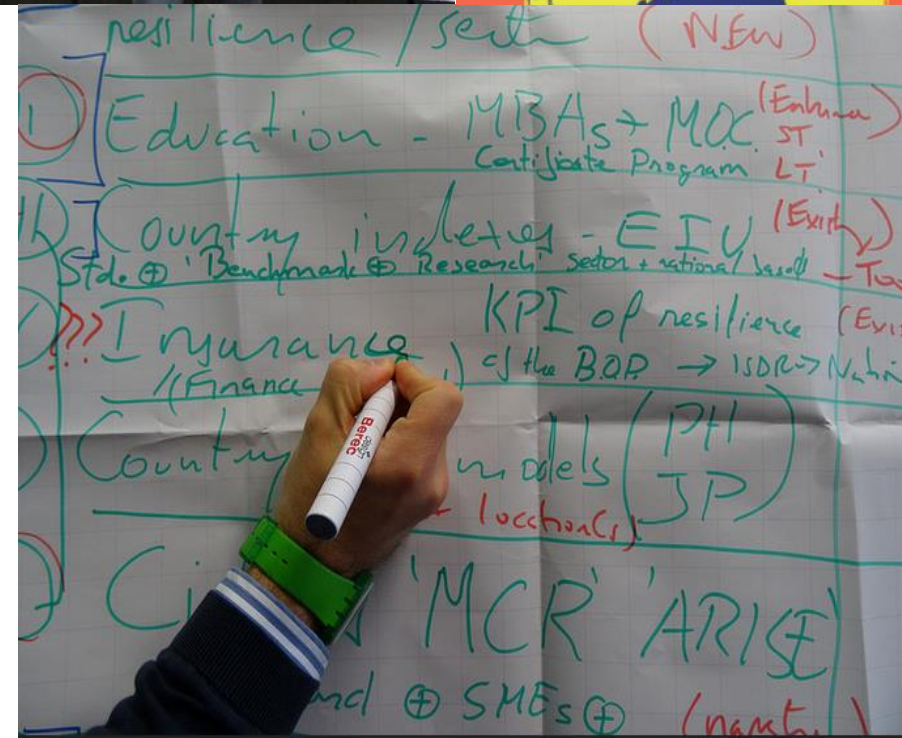 resilience / (NEW)
Education - MBAs + M.O.C. (Enhance)
ST
Certificate Program LT
Country indexes - EIU (Exist)
Std. ⊕ 'Benchmark ⊕ Research' sector + national based
??? Insurance KPI of resilience
//(Finance of the B.O.P. → ISDR →
Country models (PH
JP)
location(s)
'MCR' 'ARISE'
⊕ SMEs ⊕
Berec